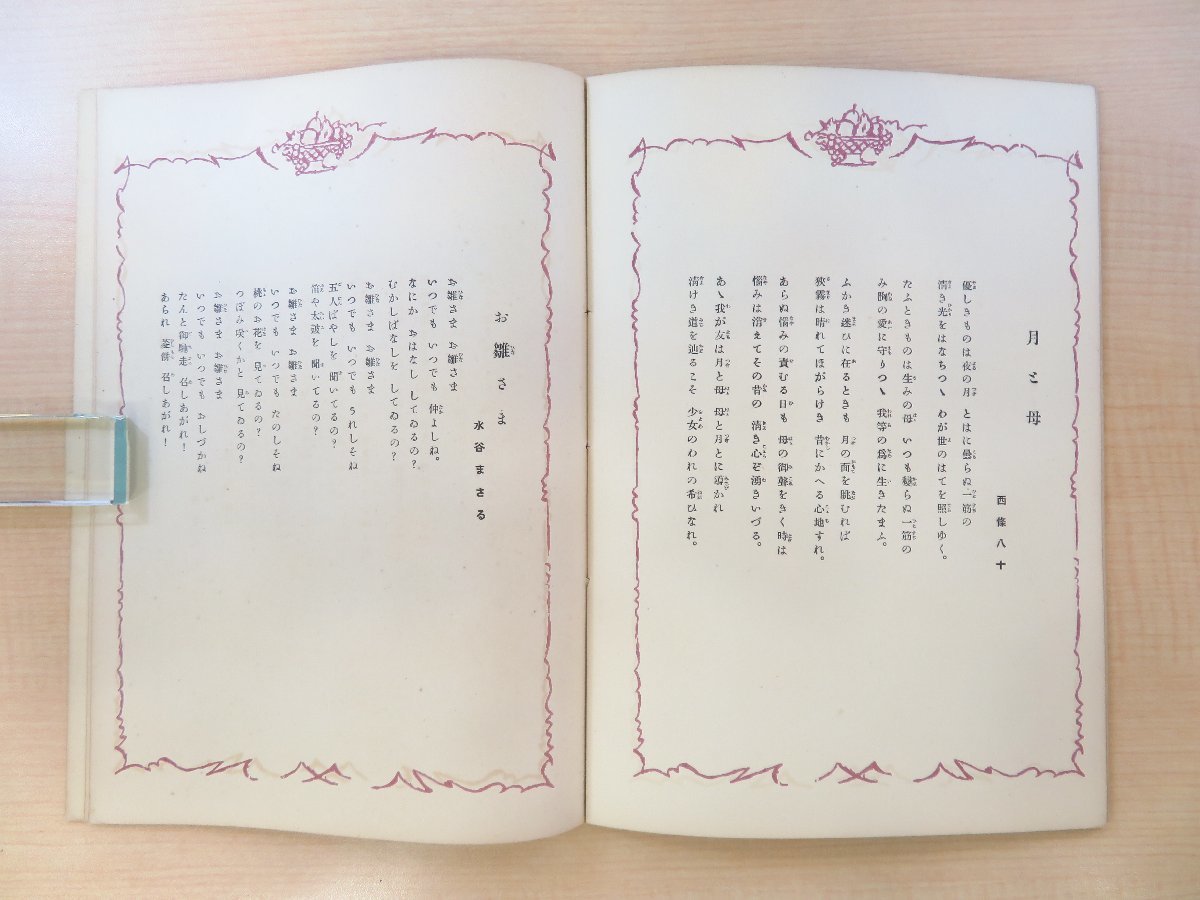 月と母
西條八十
優しきものは夜の月 とはに曇らぬ一筋の
清き光をはなちつヽ わが世のはてを照しゆく。
たふときものは生みの母 いつも變らぬ一筋の
み胸の愛に守りつヽ 我等の爲に生きたまふ。
ふかき迷ひに在るときも 月の面を眺むれば
狹霧は晴れてほがらけき 昔にかへる心地すれ。
あらぬ惱みの責むる日も 母の御聲をきく時は
惱みは消えてその昔の 清き心ぞ湧きいづる。
あヽ我が友は月と母 母と月とに導かれ
清けき道を辿るこそ 少女のわれの希ひなれ。
お雛さま
水谷まさる
お雛さま お雛さま
いつでも いつでも 仲よしね。
なにか おはなし してゐるの?
むかしばなしを してゐるの?
お雛さま お雛さま
いつでも いつでも うれしそね
五人ばやしを 聞いてるの?
笛や太鼓を 聞いてるの?
お雛さま お雛さま
いつでも いつでも たのしそね
桃のお花を 見てゐるの?
つぼみ咲くかと 見てゐるの?
お雛さま お雛さま
いつでも いつでも おしづかね
たんと御馳走 召しあがれ!
あられ 菱餅 召しあがれ!